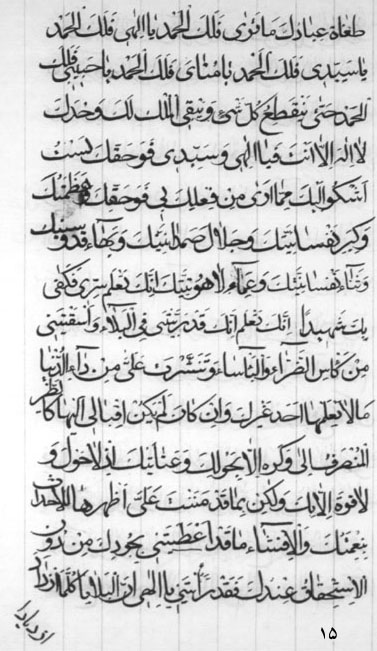 طغاة عبادك ما ترى فلك الحمد يا الهى فلك الحمد
يا سيدى فلك الحمد يا مناى فلك الحمد يا حبيبى فلك
الحمد حتى ينقطع كل شئ و يبقى الملك لك وحدك
لا اله الا انت فيا الهى و سيدى فوحقك لست
اشكو اليك مما ارى من فعلك بى فوحقك و عظمتك
و كبر نفسانيتك و جلال صمدانيتك و بهاء قدوسيتك
و ثناء نفسانيتك و عماء لاهوتيتك انك تعلم سرى فكفى
بك شهيدا انك تعلم انك قد ربيتنى فى البلاء و اسقيتنى
من كاس الضراء و الباساء و تنشرت على من داء الدنيا
ما لا يعلمها احد غيرك و ان كان لم يكن اقبالى اليها كا نظر
المنصرف الى و كره الا بحولك و عنايتك اذ لا حول و
لا قوة الا بك ولكن بما قد مننت على اظهرها للاحداث
بنعمتك و الافشاء ما قد اعطيتنى بجودك من دون
الاستحقاق عندك فقد رأيتنى يا الهى ان البلايا كلما ازداد
ازدياد
١٥